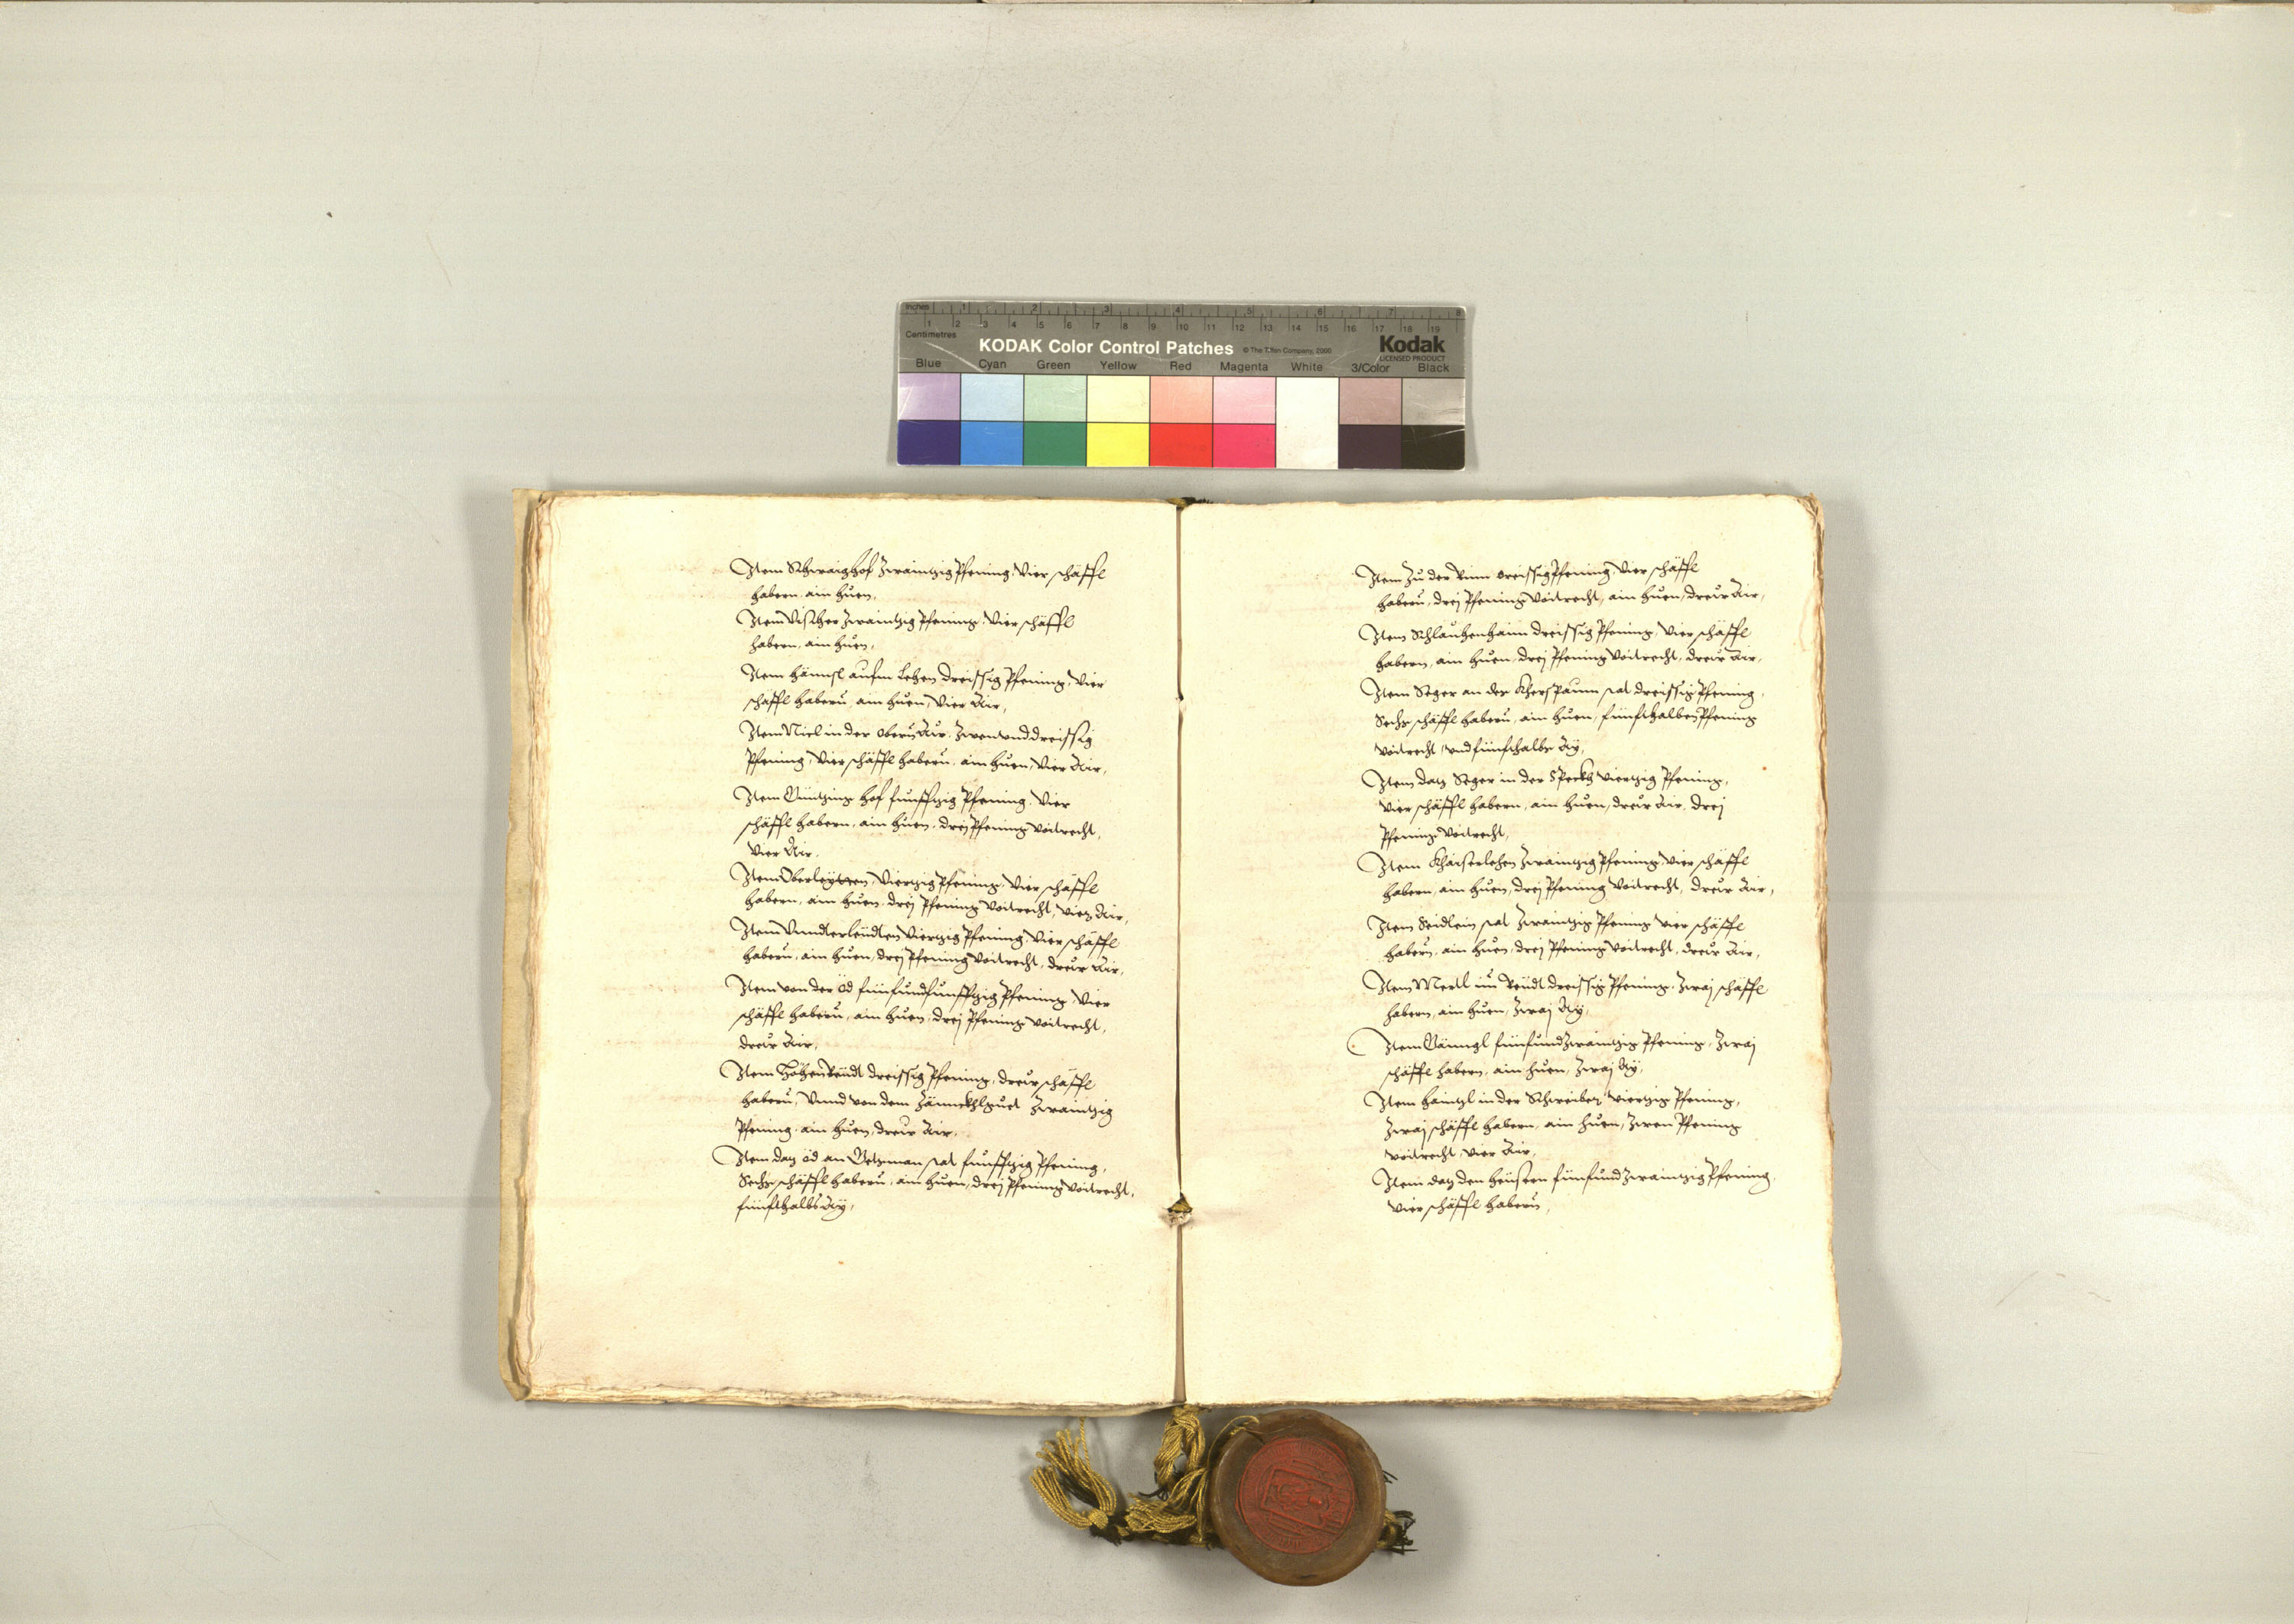 Inches 1 2 3 4 5 6 7 8
1 2 3 4 5 6 7 8 9 10 11 12 13 14 15 16 17 18 19
Centimetres
KODAK Color Control Patches © The Tiffen Company, 2000 Kodak
LICENSED PRODUCT
Blue Cyan Green Yellow Red Magenta White 3/Color Black
Item Schwaighof Zwaintzig Pfening, Vier schäffl
habern, ain huen,
Item Vischer Zwaintzig Pfening, Vier schäffl
habern, ain huen,
Item Hännsl aufm Lehen dreissig Pfening, Vier
schäffl habern, ain huen, Vier Air,
Item Nicl in der Obern Air, Zwenunddreissig
Pfening, Vier schäffl habern, ain huen, Vier Air,
Item hof funfftzig Pfening, Vier
schäffl habern, ain huen, drej Pfening Voitrecht,
Vier Air,
Item Viertzig Pfening, Vier schäffl
habern, ain huen, drej Pfening Voitrecht, Vier Air,
Item Vnnderleudten Viertzig Pfening, Vier schäffl
habern, ain huen, drej Pfening Voitrecht, dreir Air,
Item von der Öd fünfundfunfftzig Pfening, Vier
schäffl habern, ain huen, drej Pfening Voitrecht,
dreir Air,
Item Hohenreudt dreissig Pfening, dreir schäffl
habern, Vnnd von dem Zwaintzig
Pfening, ain huen, dreir Air,
Item daz öd an funfftzig Pfening,
Sechs schäffl habern, ain huen, drej Pfening Voitrecht,
fünfthalbs Ay,
Item Zu der dreissig Pfening, Vier schäffl
habern, drej Pfening Voitrecht, ain huen, dreir Air,
Item Schlauhenhaim dreissig Pfening, Vier schäffl
habern, ain huen, drej Pfening Voitrecht, dreir Air,
Item Seger an der dreissig Pfening,
Sechs schäffl habern, ain huen, fünfthalben Pfening
Voitrecht, und fünfthalbs Ay,
Item daz Seger in der Speckh Viertzig Pfening,
Vier schäffl habern, ain huen, dreir Air, drej
Pfening Voitrecht,
Item Khaiserlehen Zwaintzig Pfening, Vier schäffl
habern, ain huen, drej Pfening Voitrecht, dreir Air,
Item Seidlein Zwaintzig Pfening, Vier schäffl
habern, ain huen, drej Pfening Voitrecht, dreir Air,
Item Mertl im Reudt dreissig Pfening, Zwaj schäffl
habern, ain huen, Zwaj Ay,
Item fünfundzwaintzig Pfening, Zwaj
schäffl habern, ain huen, Zwaj Ay,
Item Haintzl in der Viertzig Pfening,
Zwaj schäffl habern, ain huen, Zwen Pfening
Voitrecht, Vier Air,
Item daz den Heusern fünfundzwaintzig Pfening,
Vier schäffl habern,